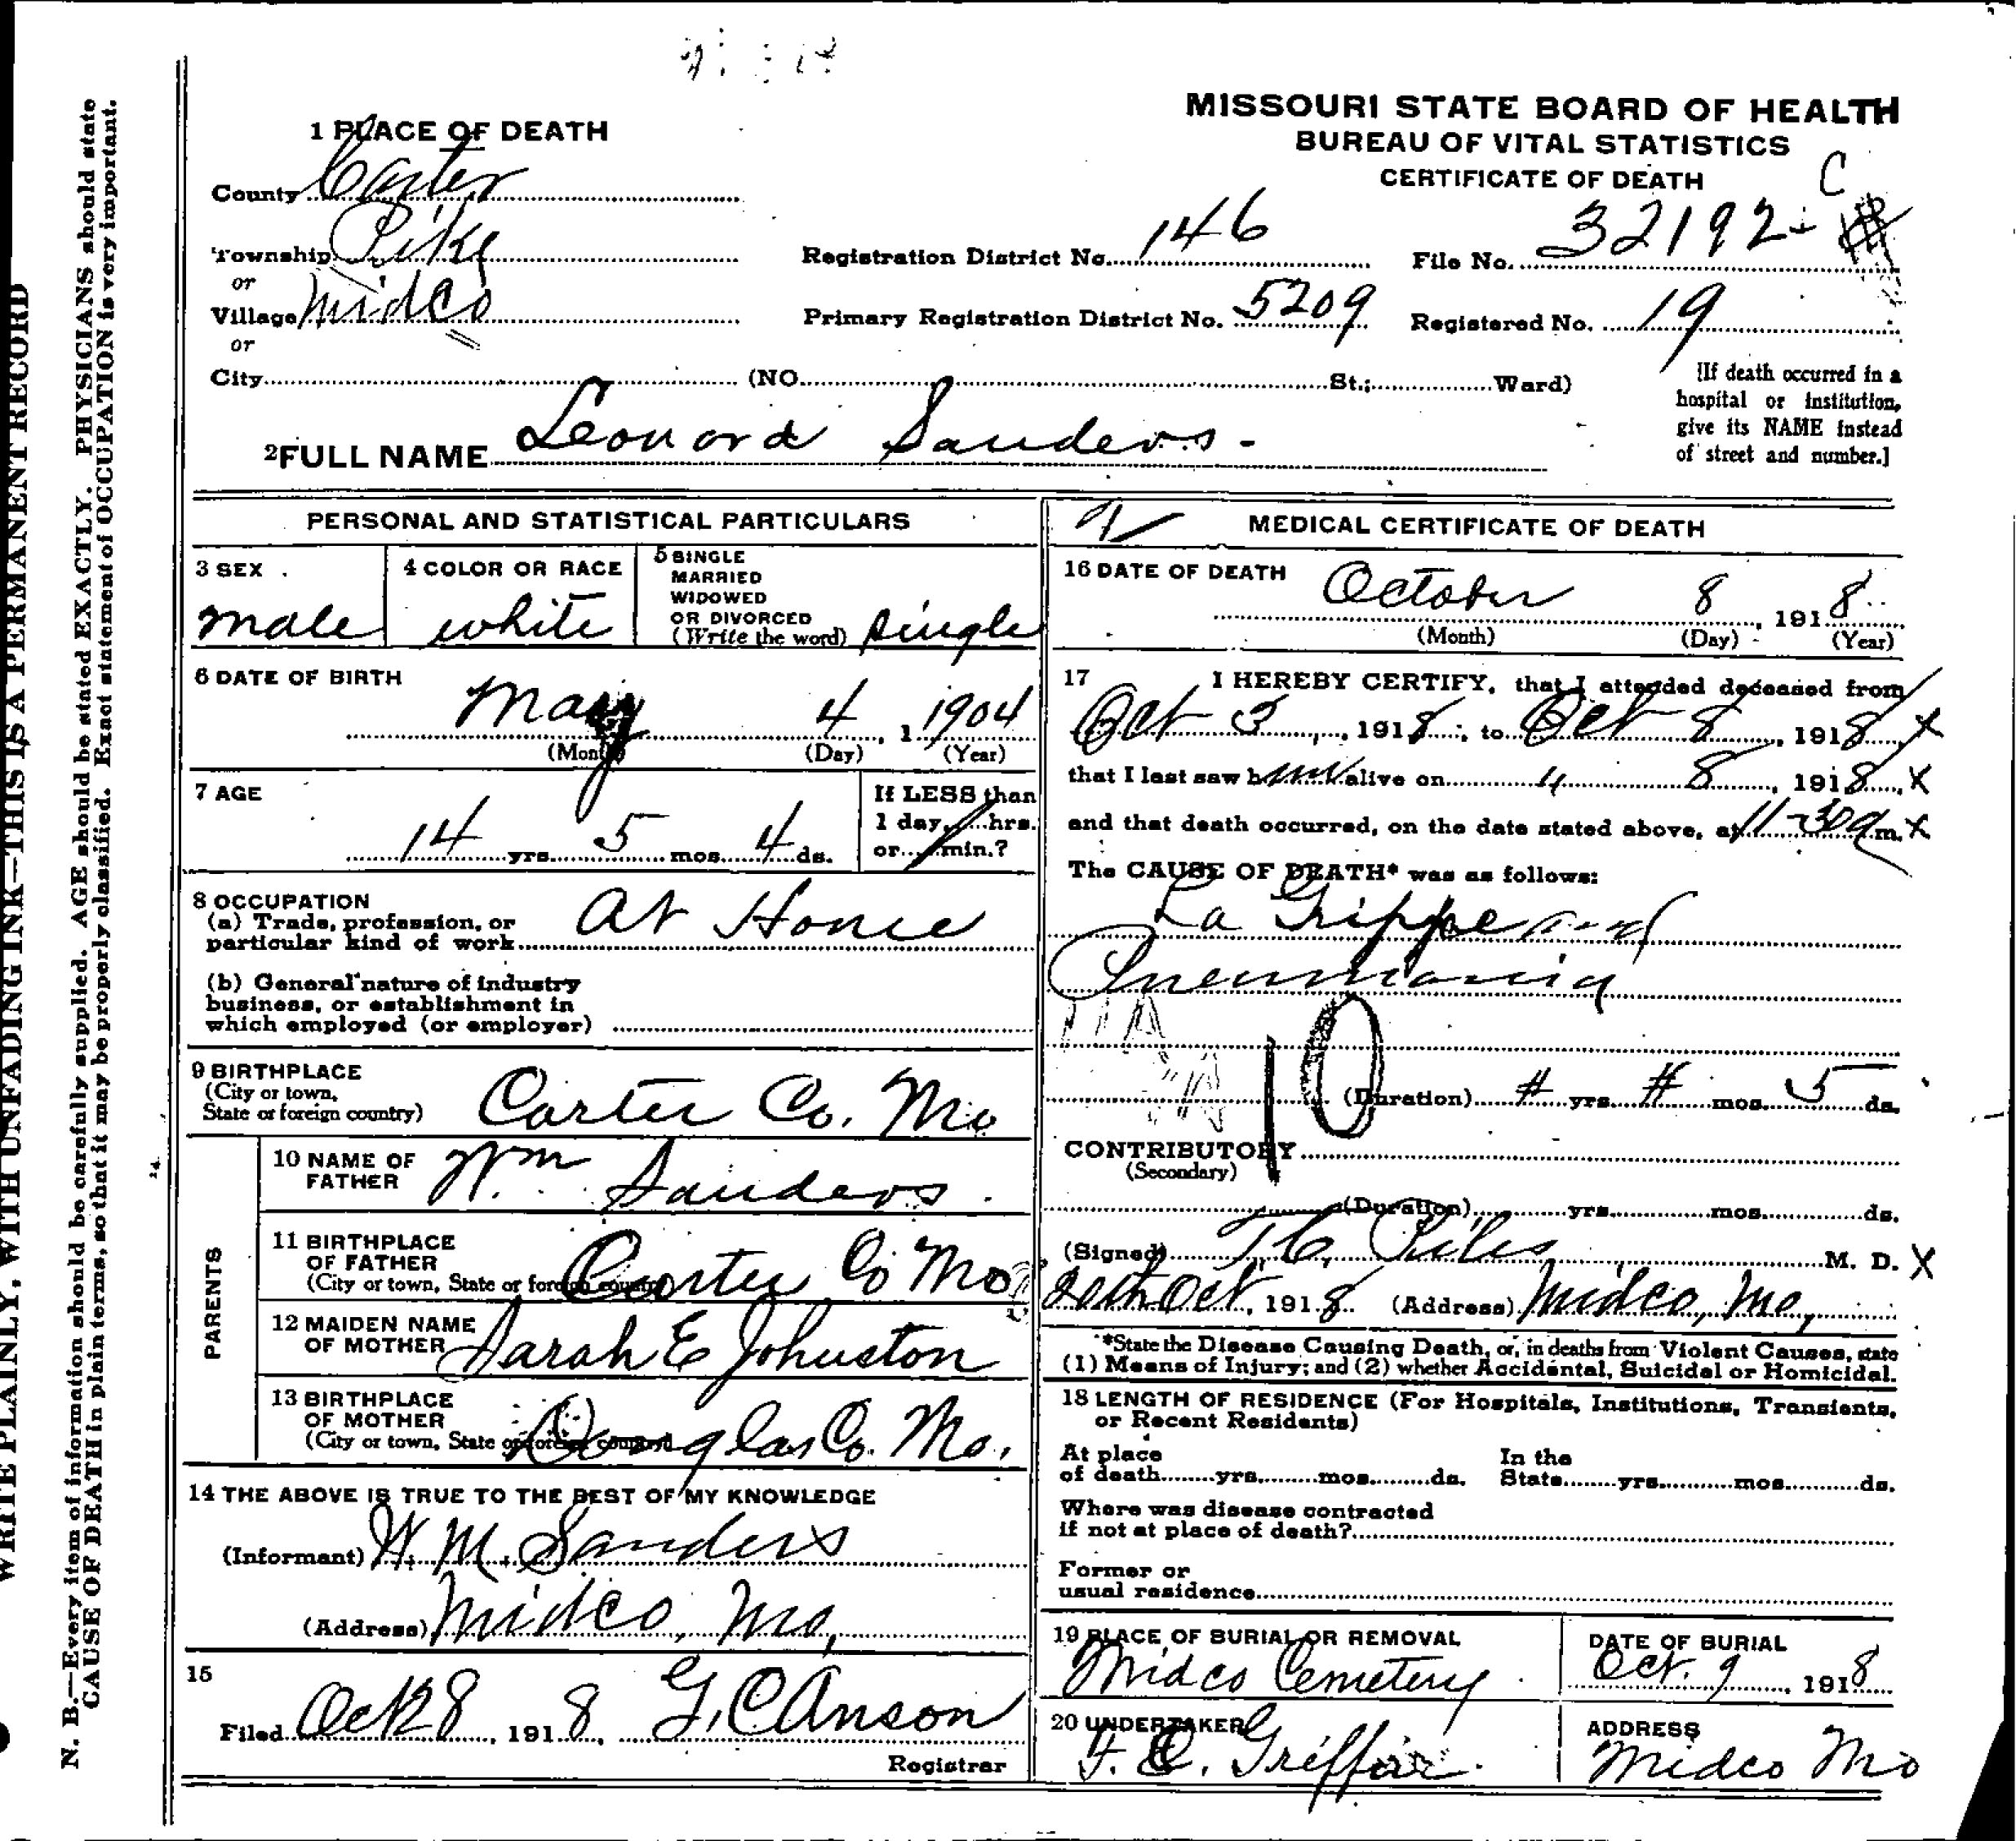 MISSOURI STATE BOARD OF HEALTH
BUREAU OF VITAL STATISTICS
CERTIFICATE OF DEATH
C
1 PLACE OF DEATH
County Carter
Township Pike
or
Village Midco
or
City (NO. St.; Ward)
Registration District No. 146
File No. 32192
Primary Registration District No. 5209
Registered No. 19
[If death occurred in a
hospital or institution,
give its NAME instead
of street and number.]
2 FULL NAME Leonard Sanders
PERSONAL AND STATISTICAL PARTICULARS
3 SEX
male
4 COLOR OR RACE
white
5 SINGLE
MARRIED
WIDOWED
OR DIVORCED
(Write the word) single
6 DATE OF BIRTH
May 4, 1 1904
(Month) (Day) (Year)
7 AGE
14 yrs. 5 mos. 4 ds.
If LESS than
1 day, hrs.
or min.?
8 OCCUPATION
(a) Trade, profession, or
particular kind of work At Home
(b) General nature of industry
business, or establishment in
which employed (or employer)
9 BIRTHPLACE
(City or town,
State or foreign country) Carter Co. Mo
PARENTS
10 NAME OF
FATHER Wm Sanders
11 BIRTHPLACE
OF FATHER
(City or town, State or foreign country) Carter Co Mo
12 MAIDEN NAME
OF MOTHER Sarah E Johnston
13 BIRTHPLACE
OF MOTHER
(City or town, State or foreign country) Douglas Co. Mo.
14 THE ABOVE IS TRUE TO THE BEST OF MY KNOWLEDGE
(Informant) W. M. Sanders
(Address) Midco, Mo,
15
Filed Oct 28, 1918, G. C Anson
Registrar
MEDICAL CERTIFICATE OF DEATH
16 DATE OF DEATH October 8, 1918
(Month) (Day) (Year)
17 I HEREBY CERTIFY, that I attended deceased from
Oct 3, 1918, to Oct 8, 1918, X
that I last saw him alive on " 8, 1918, X
and that death occurred, on the date stated above, at 11-30 a m. X
The CAUSE OF DEATH* was as follows:
La Grippe and
Pneumonia
11A
10
(Duration) # yrs. # mos. 5 ds.
CONTRIBUTORY
(Secondary)
(Duration) yrs. mos. ds.
(Signed) M. D. X
20th Oct, 1918 (Address) Midco, Mo,
*State the Disease Causing Death, or, in deaths from Violent Causes, state
(1) Means of Injury; and (2) whether Accidental, Suicidal or Homicidal.
18 LENGTH OF RESIDENCE (For Hospitals, Institutions, Transients,
or Recent Residents)
At place
of death yrs. mos. ds.
In the
State yrs. mos. ds.
Where was disease contracted
if not at place of death?
Former or
usual residence
19 PLACE OF BURIAL OR REMOVAL
Midco Cemetery
DATE OF BURIAL
Oct. 9, 1918
20 UNDERTAKER
Griffin
ADDRESS
Midco Mo
N. B.—Every item of information should be carefully supplied. AGE should be stated EXACTLY. PHYSICIANS should state
CAUSE OF DEATH in plain terms, so that it may be properly classified. Exact statement of OCCUPATION is very important.
WRITE PLAINLY, WITH UNFADING INK—THIS IS A PERMANENT RECORD